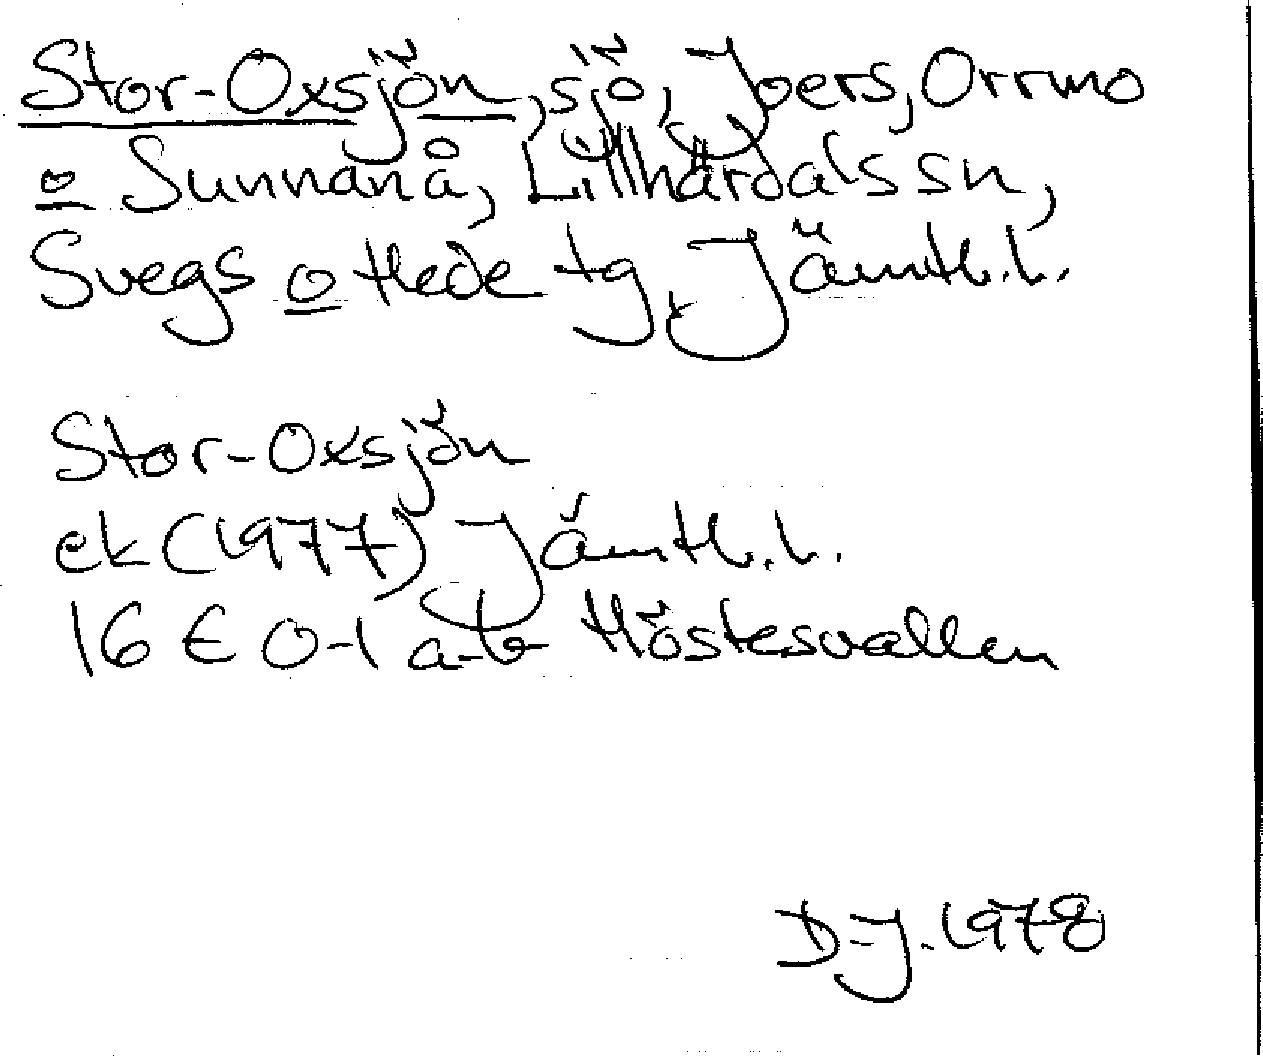 Stor-Oxsjön, sjö, Joers, Orrmo
o Sunnanå, Lillhärdals sn,
Svegs o Hede tg, Jämtl. l.
Stor-Oxsjön
ek (1977) Jämtl. l.
16 E 0-1 a-b Höstesvallen
D-J. 1978